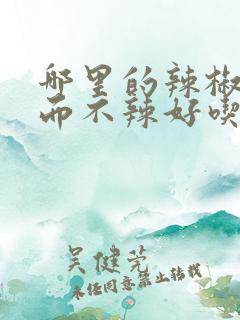 哪里的辣椒
而不辣好喫
吴健莞
未经同意禁止转载